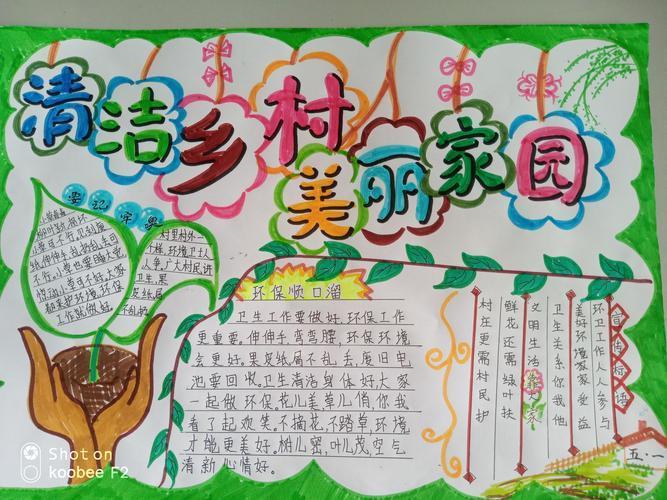 清洁乡村
美丽家园
要记牢界
村里村外一
个样，环境卫士人
人争，广大村民讲
卫生，果
皮纸屑
不乱扔
环保顺口溜
卫生工作要做好，环保工作
更重要。伸伸手，弯弯腰，环保环境
会更好。果皮纸屑不乱丢，废旧电
池要回收。卫生清洁身体好，大家
一起做环保。花儿美，草儿俏，你我
看了起欢笑。不摘花，不踏草，环境
才能更美好。树儿密，叶儿茂，空气
清新心情好。
宣传标语
环卫工作人人参与
美好环境家家受益
卫生关系你我他
文明生活靠大家
鲜花还需绿叶扶
村庄更需村民护
五·一
Shot on
koobee F2